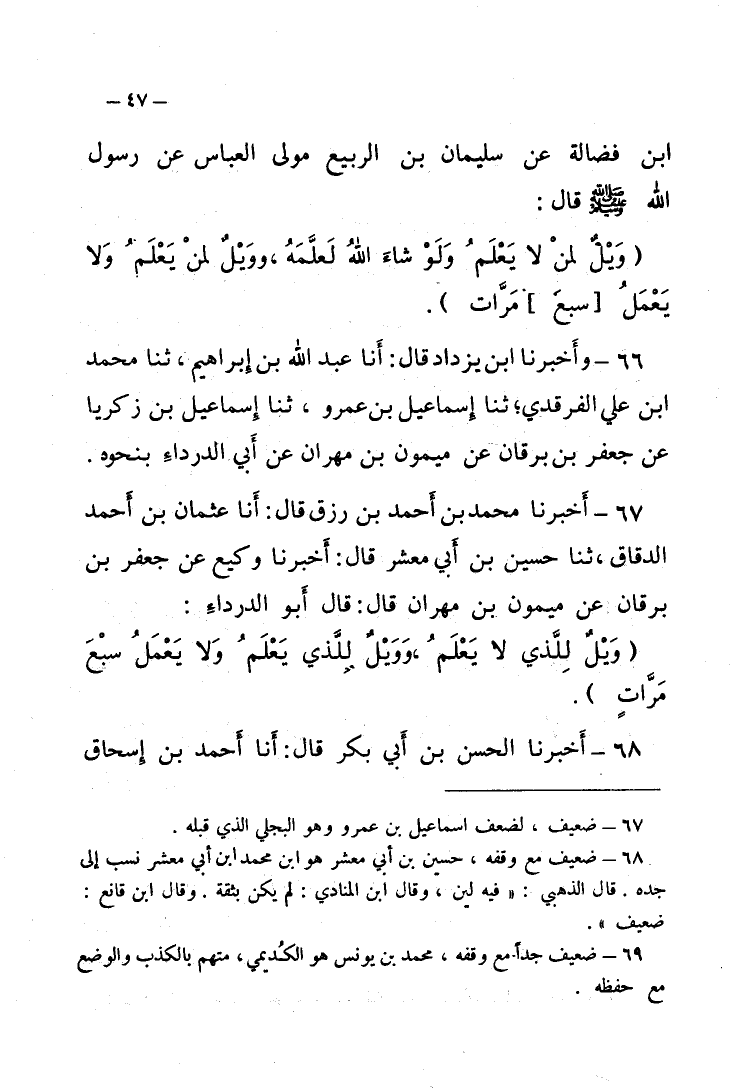 – ٤٧ –
ابن فضالة عن سليمان بن الربيع مولى العباس عن رسول
الله ﷺ قال :
( وَيْلٌ لمنْ لا يَعْلَمُ وَلَوْ شاءَ اللهُ لَعلَّمَهُ ،وويْلٌ لمنْ يَعْلَمُ وَلا
يَعْمَلُ [سبعَ ] مَرَّات ) .
٦٦ – وأخبرنا ابن يزداد قال : أنا عبد الله بن إبراهيم ، ثنا محمد
ابن علي الفرقدي؛ ثنا إسماعيل بن عمرو ، ثنا إسماعيل بن زكريا
عن جعفر بن برقان عن ميمون بن مهران عن أبي الدرداء بنحوه .
٦٧ – أخبرنا محمد بن أحمد بن رزق قال : أنا عثمان بن أحمد
الدقاق ، ثنا حسين بن أبي معشر قال : أخبرنا وكيع عن جعفر بن
برقان عن ميمون بن مهران قال : قال أبو الدرداء :
( وَيْلٌ لِلَّذي لا يَعْلَمُ ،وَوَيْلٌ لِلَّذي يَعْلَمُ وَلا يَعْمَلُ سبْعَ
مَرَّاتٍ ) .
٦٨ – أخبرنا الحسن بن أبي بكر قال : أنا أحمد بن إسحاق
٦٧ – ضعيف ، لضعف اسماعيل بن عمرو وهو البجلي الذي قبله .
٦٨ – ضعيف مع وقفه ، حسين بن أبي معشر هو ابن محمد ابن أبي معشر نسب إلى
جده . قال الذهبي : « فيه لين ، وقال ابن المنادي : لم يكن بثقة . وقال ابن قانع :
ضعيف » .
٦٩ – ضعيف جداً مع وقفه ، محمد بن يونس هو الكُديمي ، متهم بالكذب والوضع
مع حفظه .